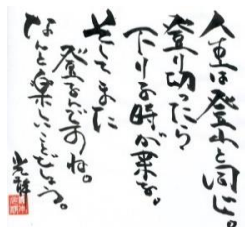 人生は登山と同じ。
登り切ったら
下りる時が来る。
そしてまた
登るんですね。
なんと楽しいことでしょう。
光祥